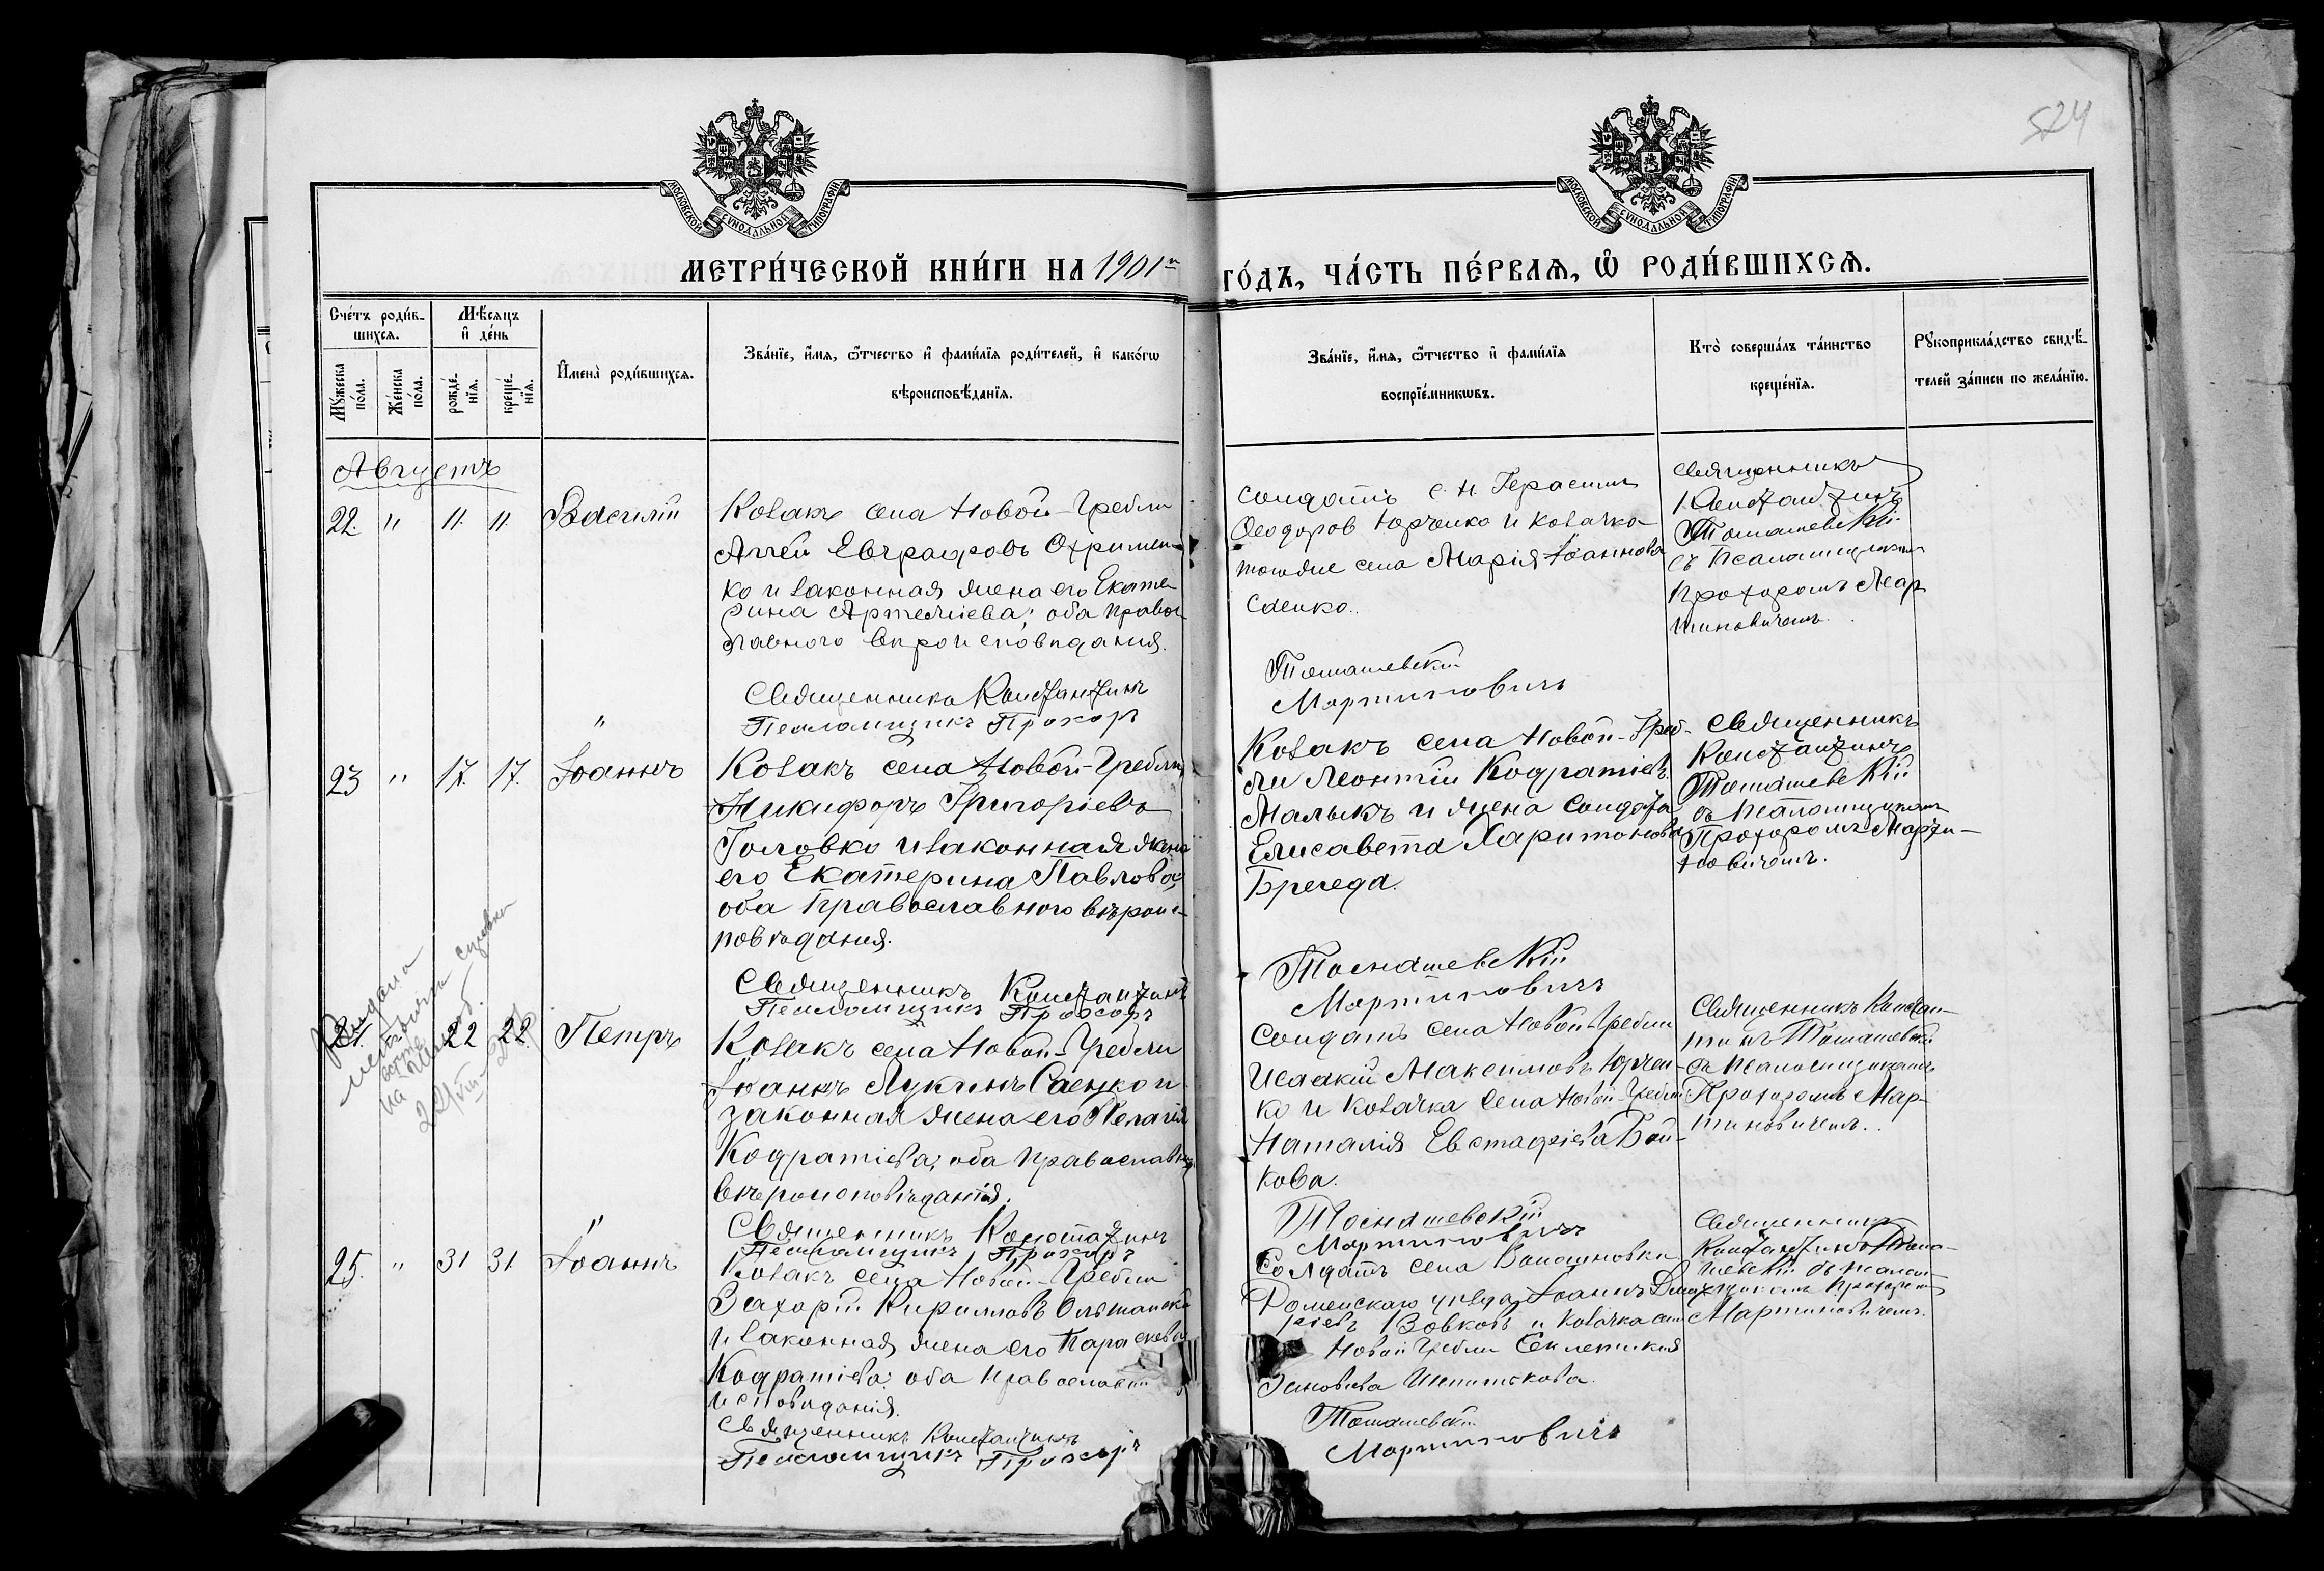 524
МОСКОВСКОЙ СѴНОДАЛЬНОЙ ТИПОГРАФІИ
МОСКОВСКОЙ СѴНОДАЛЬНОЙ ТИПОГРАФІИ
МЕТРИ́ЧЕСКОЙ КНИ́ГИ НА 1901й ГО́ДЪ, ЧА́СТЬ ПЕ́РВАѦ, Ѡ РОДИ́ВШИХСѦ.
Сче́тъ роди́в-
шихсѧ.
Мѣ́сяцъ
и҆ де́нь
Мꙋ́жеска
по́ла.
Же́нска
по́ла.
рожде́-
нїѧ.
креще́-
нїѧ.
И҆мена̀ роди́вшихсѧ.
Зва́нїе, и҆́мѧ, ѻ҆́тчество и҆ фами́лїѧ роди́телей, и҆ како́гѡ
вѣроисповѣ́данїѧ.
Зва́нїе, и҆́мѧ, ѻ҆́тчество и҆ фами́лїѧ
воспрїе́мникѡвъ.
Кто̀ соверша́лъ та́инство
креще́нїѧ.
Рꙋкоприкла́дство свидѣ́-
телей за́писи по жела́нїю.
Августъ
22. " 11. 11. Василій
Козакъ села Новой-Гребли
Евграфовъ Охримен-
ко и законная жена его Екате-
рина Артеміева; оба правос-
лавного вѣроисповѣданія.
Священникъ Константинъ
Псаломщикъ Прохоръ
солдатъ с. Н. Герасимъ
Ѳеодоров Юрченко и козачка
тогоже села Марія Іоаннова
Саенко.
Томашевскій
Мартиновичъ
Священникъ
Константинъ
Томашевскій
съ Псаломщикомъ
Прохоромъ Мар
тиновичемъ.
"
23 " 17. 17. Іоаннъ
Козакъ села Новой-Гребли
Никифоръ Григоріевъ
Головко и законная жена
его Екатерина Павлова;
оба православного вѣроис-
повѣданія.
Священникъ Константинъ
Псаломщикъ Прохоръ
Козакъ села Новой-Греб-
ли Леонтій Кодратіевъ
Малыкъ и жена солдата
Елисавета Харитонова
Брегеда.
Томашевскій
Мартиновичъ
Священникъ
Константинъ
Томашевскій
съ псаломщикомъ
Прохоромъ Марти-
новичемъ.
Выдана
справка
на
22 22. Петръ
Козакъ села Новой-Гребли
Іоаннъ Лукинъ Саенко и
законная жена его Пелагія
Кодратіева; оба православн.
вѣроисповѣданія.
Священникъ Константинъ
Псаломщикъ Прохоръ
Солдатъ села Новой Гребли
Исаакій Максимовъ Юрчен-
ко и козачка села Новой-Гребли
Наталія Евстафіева Бой-
кова.
Томашевскій
Мартиновичъ
Священникъ Констан-
тинъ Томашевскій
съ псаломщикомъ
Прохоромъ Мар-
тиновичемъ.
"
25. " 31 31 Іоаннъ
Козакъ села Новой-Гребли
Захарій Кириловъ
и законная жена его Параскева
Кодратіева; оба православн.
исповѣданія.
Священникъ Константинъ
Псаломщикъ Прохоръ
Солдатъ села
Роменскаго уѣзда Іоаннъ Димит-
ріевъ Вовкъ и козачка села
Новой Гребли
Зиновіева
Томашевскій
Мартиновичъ
Священникъ
Константинъ Тома-
шевскій съ псалом-
щикомъ Прохоромъ
Мартиновичемъ.